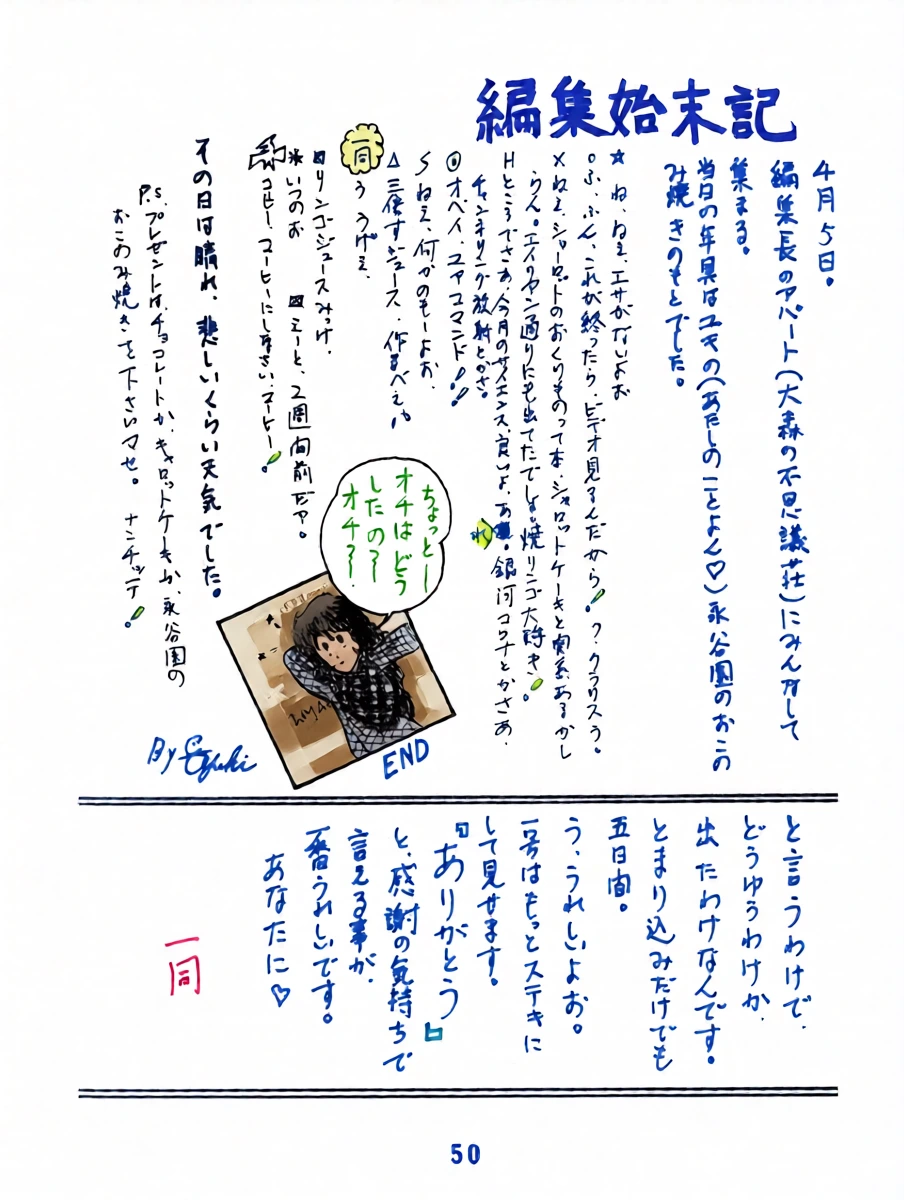 編集始末記
4月5日。
編集長のアパート(大森の不思議荘)にみんなして
集まる。
当日の年貢はユキの(あたしのことよん♡)永谷園のおこの
み焼きのもとでした。
★ ね、ねェ、エサがないよお
○ふ、ふん、これが終ったら、ビデオ見るんだから!?クラリスう。
×ねェ、シャーロットのおくりものって本、シャーロットケーキと関係あるかし
らん。エイリアン通りにも出てたでしょ。焼リンゴ大好き!。
Hところでさあ、今月のサイエンス、良いよ、あれ。銀河コロナとかさあ、
チェレンコフ放射とかさ。
◎オベイ、ユアコマンド!!
Sねえ、何かのもーよお、
△三倍すジュース、作るべえ。
同 う、うげェ、
リンゴジュースみっけ、
※いつのお ミーと、2週間前だァ。
コヒー、コーヒーにしなさい、コーヒー!
その日は晴れ、悲しいくらい天気でした。
P.S. プレゼントは、チョコレートか、キャロットケーキか、永谷園の
おこのみ焼きを下さいマセ。 ナンチッテ!
ちょっとー
オチはどう
したの?
オチ?
END
By Yuki
と言うわけで、
どうゆうわけか、
出たわけなんです。
とまり込みだけでも
五日間。
う、うれしいよお。
一号はもっとステキに
して見せます。
『ありがとう』
と、感謝の気持ちで
言える事が、
一番うれしいです。
あなたに♡
一同
50